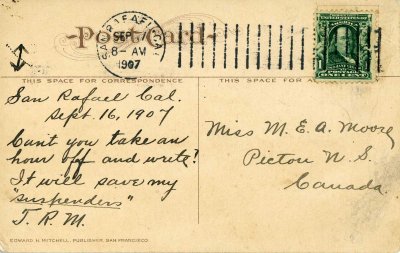 Post Card
SAN RAFAEL, CAL.
SEP 17
8-AM
1907
THIS SPACE FOR CORRESPONDENCE
THIS SPACE FOR A
San Rafael Cal.
Sept. 16, 1907
Can't you take an
hour off and write?
It will save my
"suspenders"
T.R.M.
Miss M. E. A. Moore
Picton N. S.
Canada.
EDWARD H. MITCHELL, PUBLISHER, SAN FRANCISCO